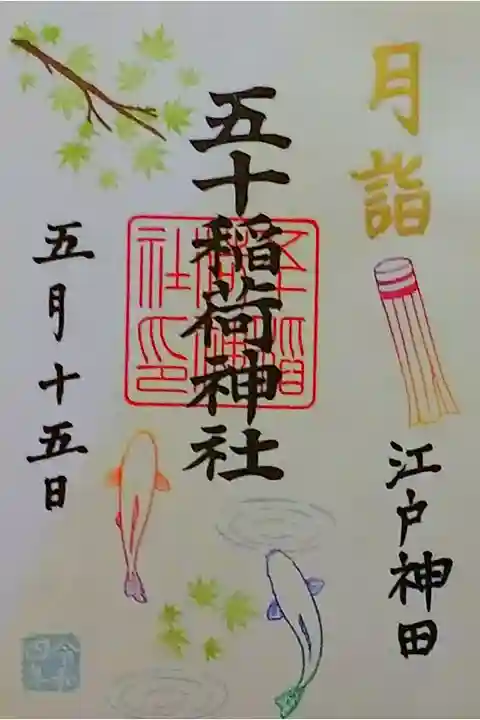 月詣
江戸神田
五十稲荷神社
五月十五日